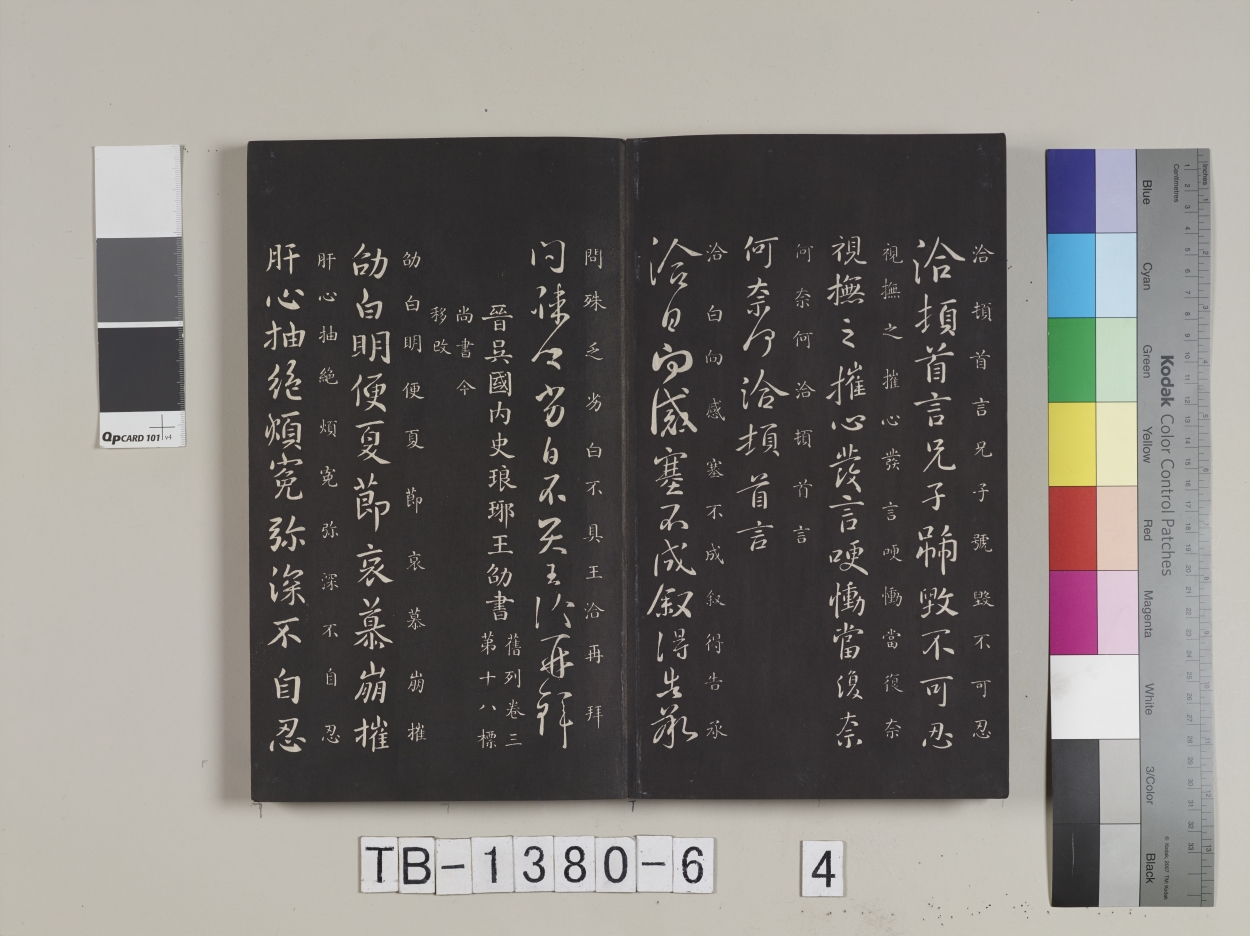 洽頓首言兄子號毀不可忍
洽頓首言兄子號毀不可忍
視撫之摧心發言哽慟當復奈
視撫之摧心發言哽慟當復奈
何奈何洽頓首言
何奈何洽頓首言
洽白向感塞不成叙得告承
洽白向感塞不成叙得告承
問殊乏劣白不具王洽再拜
問殊乏劣白不具王洽再拜
晉吳國内史琅琊王劭書
舊列卷三
第十八標
尚書今
移改
劭白明便夏節哀慕崩摧
劭白明便夏節哀慕崩摧
肝心抽絶煩寃弥深不自忍
肝心抽絶煩寃弥深不自忍
QPCARD 101 v4
TB-1380-6
4
Inches
Centimetres
Kodak Color Control Patches
Blue
Cyan
Green
Yellow
Red
Magenta
White
3/Color
Black
© Kodak, 2007 TM: Kodak